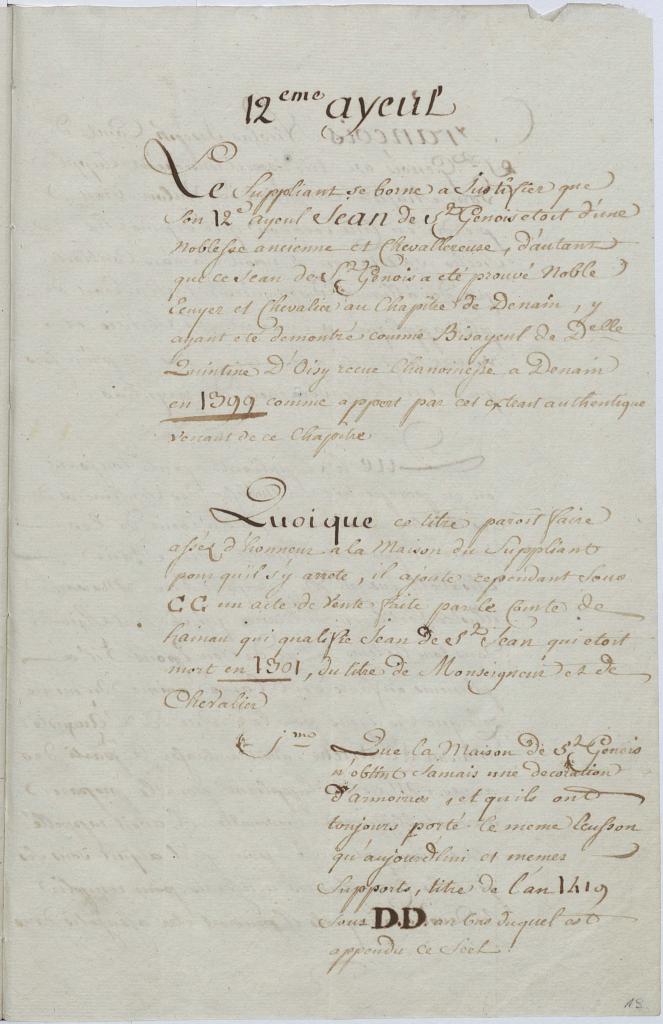 12 eme ayeul
Le Suppliant se borne a Justifier que
Son 12e ayeul Jean de St Genois etoit d'une
Noblesse ancienne et Chevallereuse, d'autant
que ce Jean de St Genois a eté prouvé Noble
Ecuyer et Chevalier au Chapitre de Denain, y
ayant eté demontré comme Bisayeul de Delle
Quintine D'Oisy recue Chanoinesse a Denain
en 1399 comme appert par cet extrait authentique
venant de ce Chapitre
Quoique ce titre paroit faire
assés d'honneur a la Maison du Suppliant
pour qu'il s'y arrete, il ajoute cependant sous
CC un acte de vente faite par le Comte de
hainau qui qualifie Jean de St Jean qui etoit
mort en 1301, du titre de Monseigneur et de
Chevalier
1mo Que la Maison de St Genois
n'obtint Jamais une decoration
D'armoiries, et qu'ils ont
toujours porté le meme Ecusson
qu'aujourdhui et memes
Supports, titre de l'an 1419
sous D.D. au bas duquel est
appendu ce Scel.
18